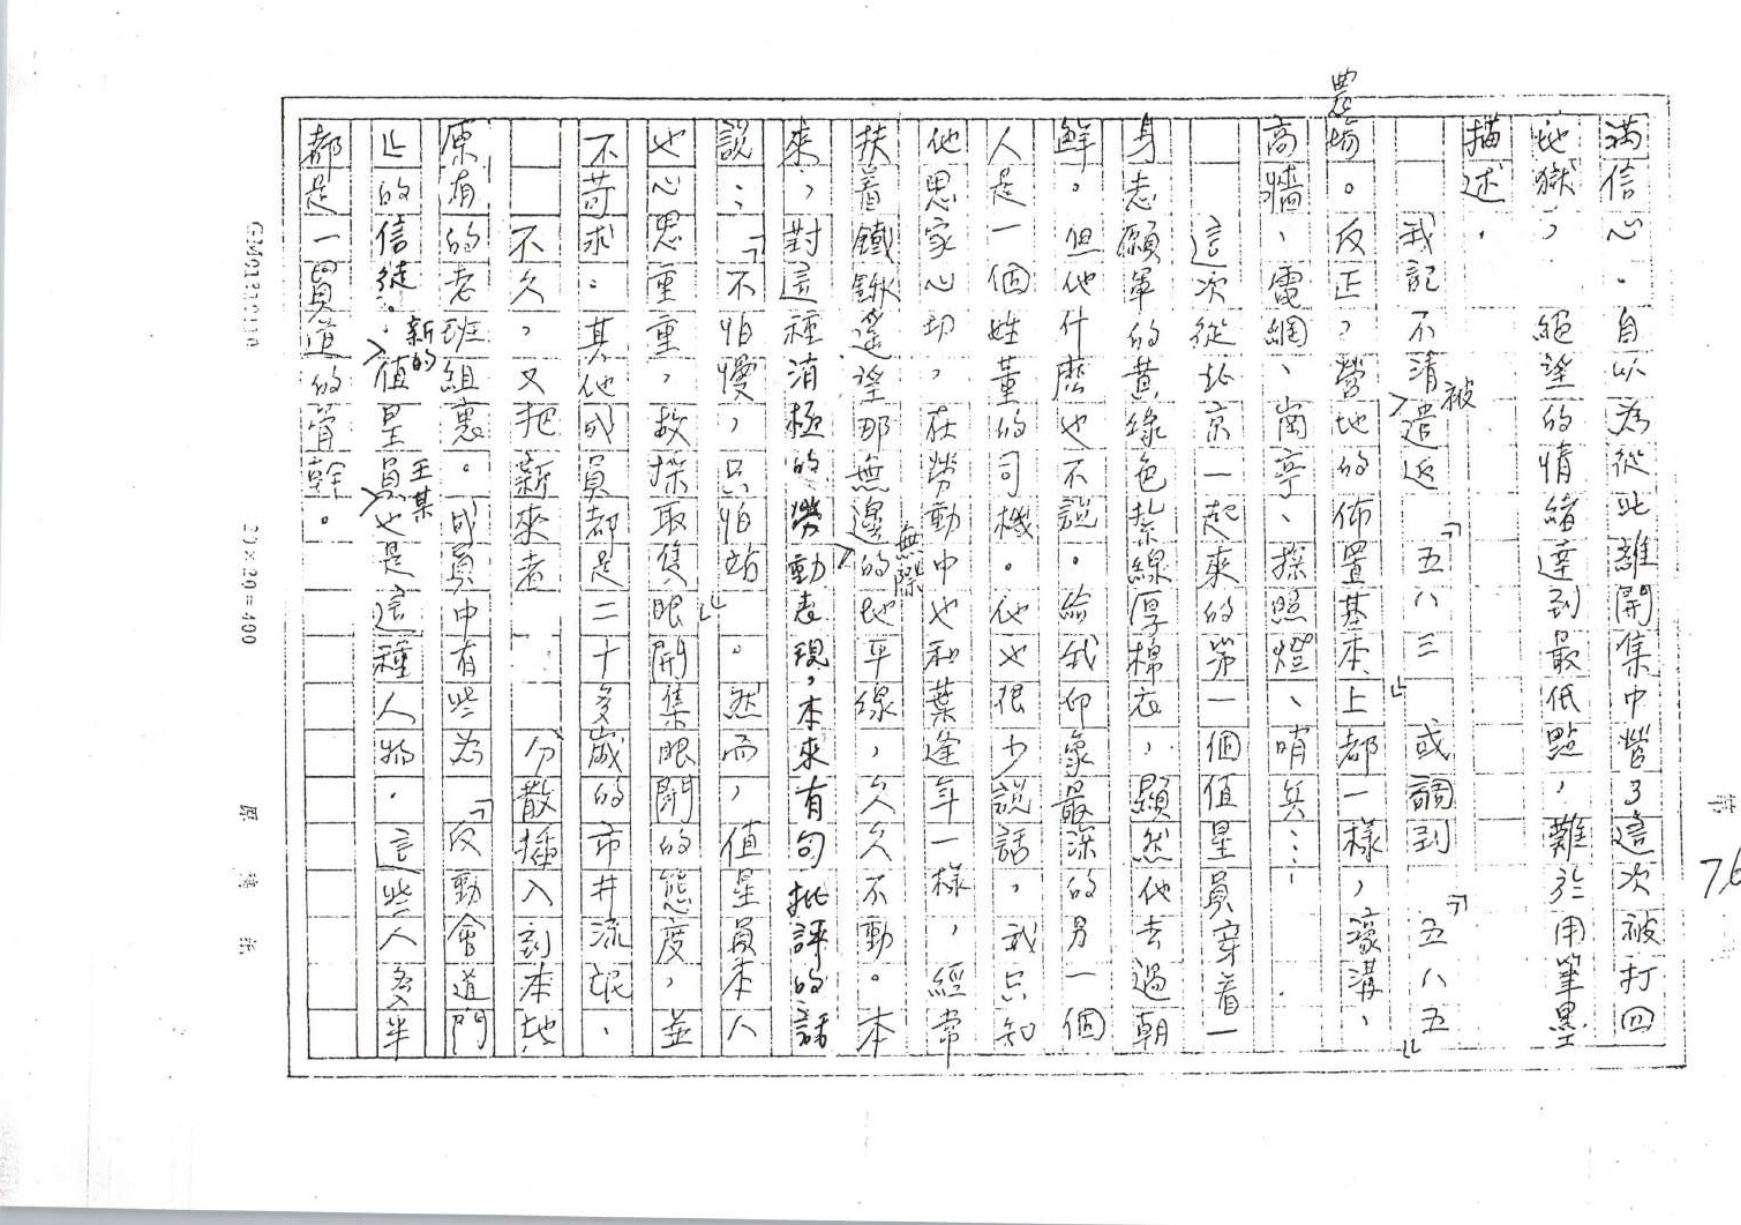 滿信心。自以為從此離開集中營了這次被打回
地獄，絕望的情緒達到最低點，難於用筆墨
描述。
我記不清被遣返「五八三」或調到「五八五」
農場。反正，營地的佈置基本上都一樣，濠溝、
高墻、電網、崗亭、探照燈、哨兵……
這次從北京一起來的第一個值星員穿着一
身志願軍的黃綠色紮線厚棉衣，顯然他去過朝
鮮。但他什麼也不說。給我印象最深的另一個
人是一個姓董的司機。他也很少說話，我只知
他思家心切，在勞動中也和葉逢年一樣，經常
扶着鐵鍬遙望那無邊無際的地平線，久久不動。本
來，對這種消極的勞動表現，本來有句批評的話
說：「不怕慢，只怕站」。然而，值星員本人
也心思重重，故採取隻眼開隻眼閉的態度，並
不苛求。其他成員都是二十多歲的市井流氓。
不久，又把新來者分散插入到本地
原有的老班組裏。成員中有些為「反動會道門
」的信徒。新的值星員王某也是這種人物。這些人多半
都是一貫道的骨幹。
76
20×20=400